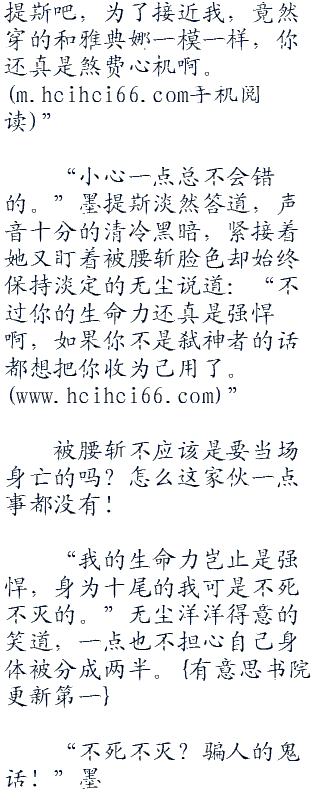 提斯吧，为了接近我，竟然
穿的和雅典娜一模一样，你
还真是煞费心机啊。
(m.hcihci66.com手机阅
读)”
“小心一点总不会错
的。”墨提斯淡然答道，声
音十分的清冷黑暗，紧接着
她又盯着被腰斩脸色却始终
保持淡定的无尘说道：“不
过你的生命力还真是强悍
啊，如果你不是弑神者的话
都想把你收为己用了。
(www.hcihci66.com)”
被腰斩不应该是要当场
身亡的吗？怎么这家伙一点
事都没有！
“我的生命力岂止是强
悍，身为十尾的我可是不死
不灭的。”无尘洋洋得意的
笑道，一点也不担心自己身
体被分成两半。{有意思书院
更新第一}
“不死不灭？骗人的鬼
话！”墨